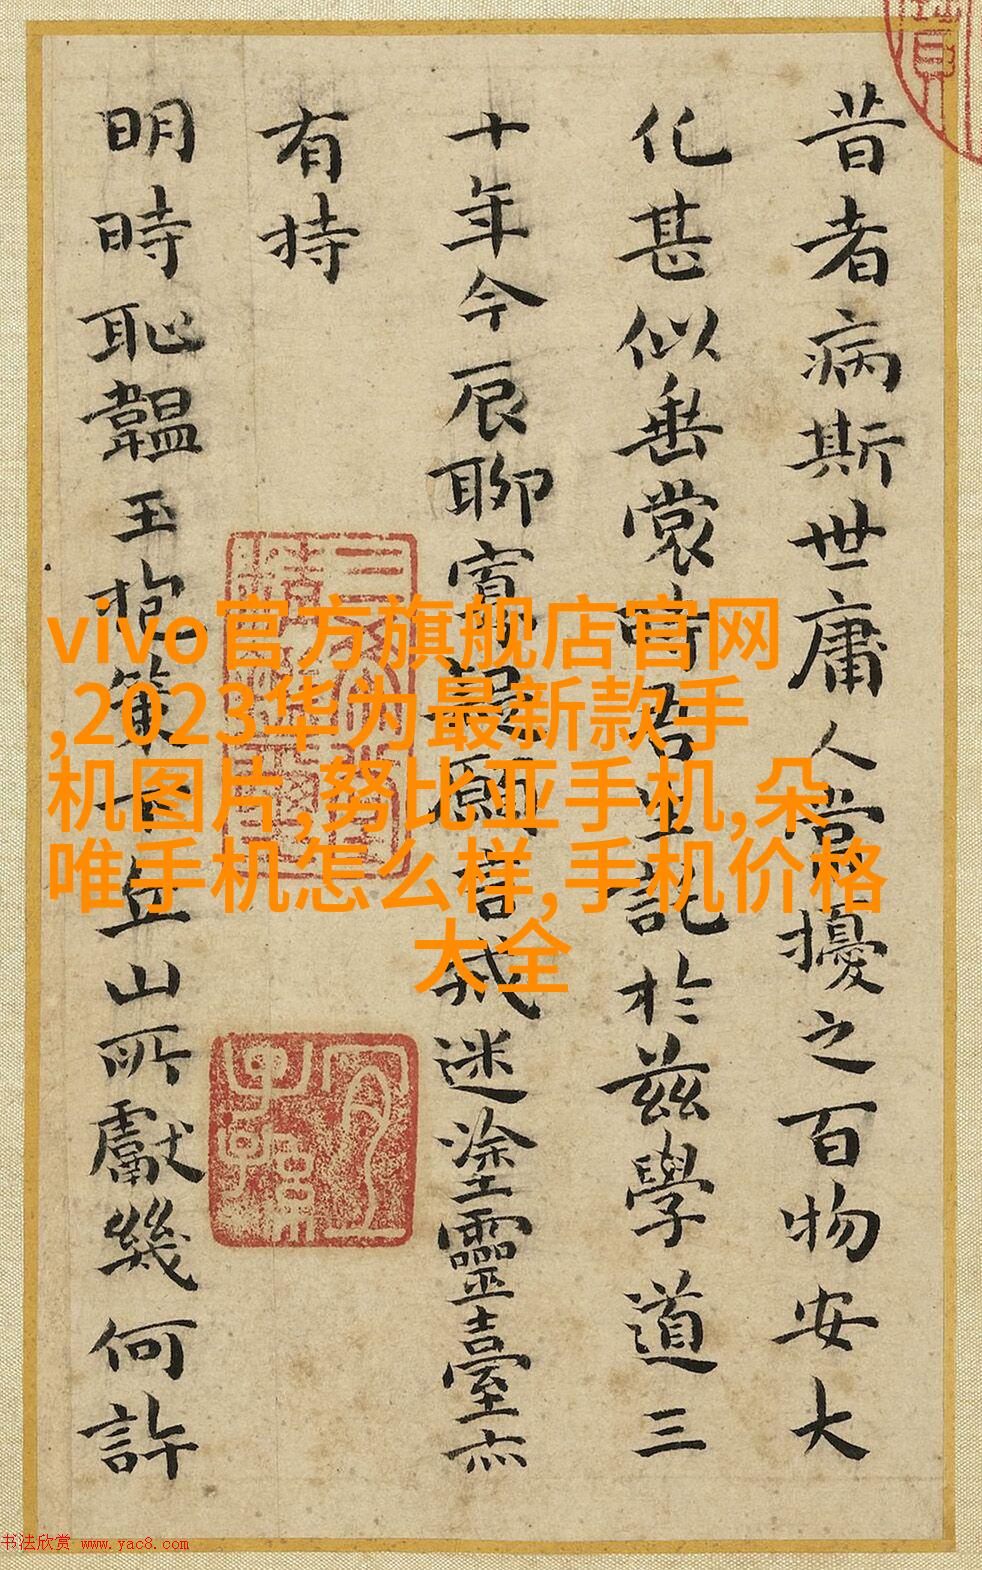 昔者病斯世庸人常擾之百物安大
化甚似垂裳時君主託於茲學道三
十年今辰聊寡最願言弑迷塗靈臺亦
有持
明時恥韞玉抱策 丘山所獻幾何許
vivo官方旗舰店官网
,2023华为最新款手
机图片,努比亚手机,朵
唯手机怎么样,手机价格
大全
书法欣赏 www.yac8.com